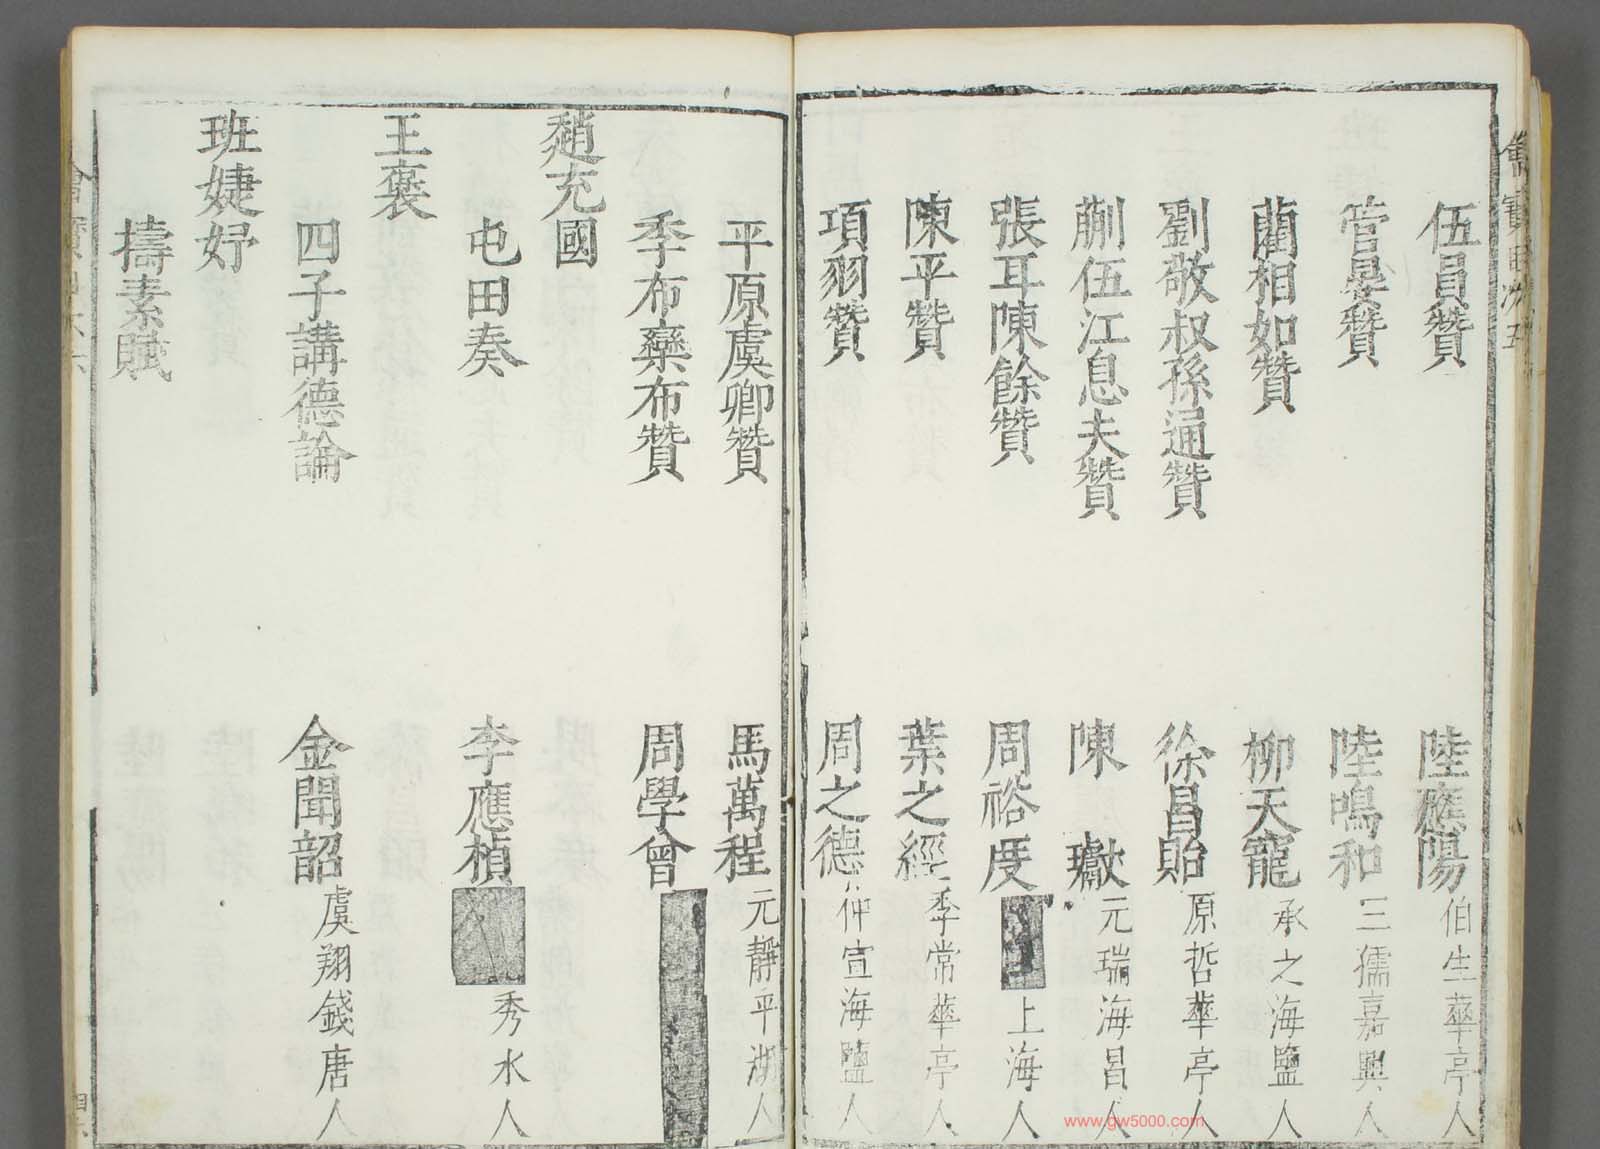 伍員贊 陸應陽 伯生華亭人
管晏贊 陸鳴和 三孺嘉興人
藺相如贊 柳天寵 承之海鹽人
劉敬叔孫通贊 徐昌貽 原哲華亭人
蒯伍江息夫贊 陳瓛 元瑞海昌人
張耳陳餘贊 周裕度 上海人
陳平贊 葉之經 季常華亭人
項羽贊 周之德 仲宣海鹽人
平原虞卿贊 馬萬程 元靜平湖人
季布欒布贊 周學會
趙充國
屯田奏 李應楨 秀水人
王襃
四子講德論 金聞韶 虞翔錢唐人
班婕妤
擣素賦
www.gw5000.com